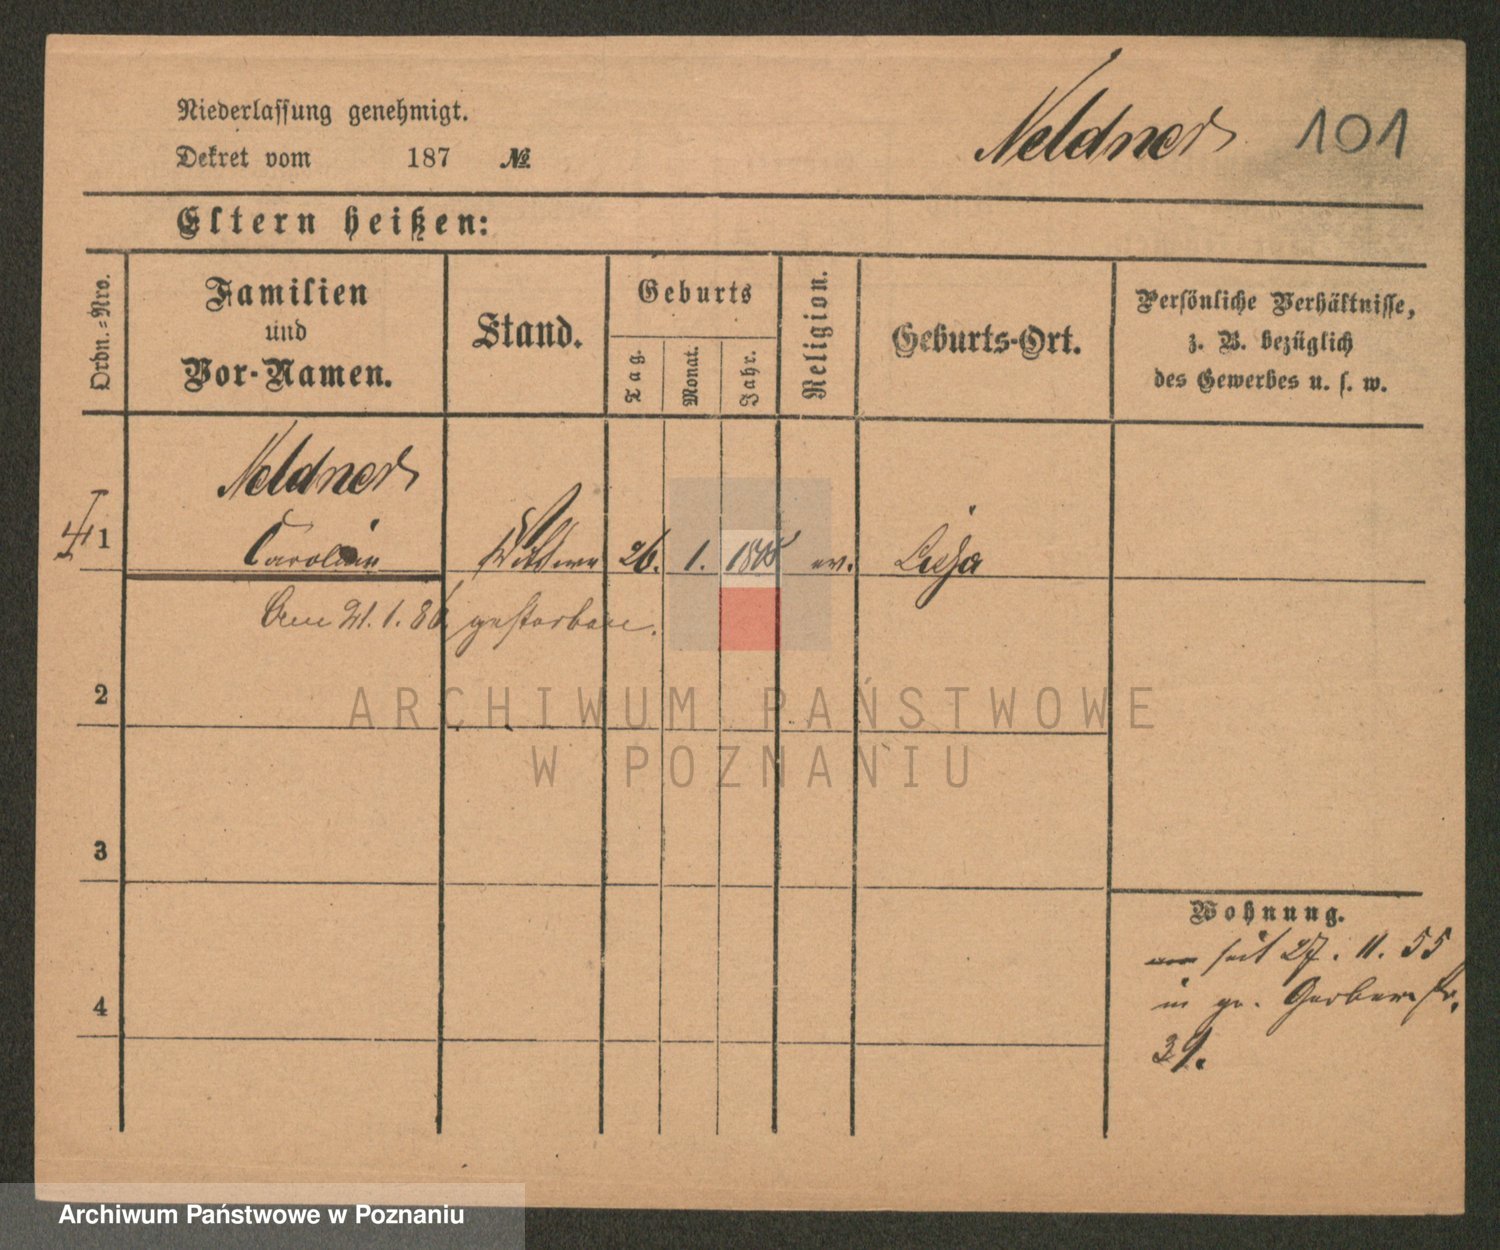 Niederlassung genehmigt.
Dekret vom 187 №
Neldner 101
Eltern heißen:
Ordn.=Nro.
Familien
und
Vor-Namen.
Stand.
Geburts
Tag.
Monat.
Jahr.
Religion.
Geburts-Ort.
Persönliche Verhältnisse,
z. B. bezüglich
des Gewerbes u. s. w.
Neldner
1 Caroline Wittwe 26. 1. ev. Lissa
Am 21. 1. 86 gestorben.
2
3
4
Wohnung.
seit 27. 11. 55
in gr. Gerberstr.
39.
ARCHIWUM PAŃSTWOWE
W POZNANIU
Archiwum Państwowe w Poznaniu